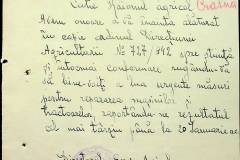 Către Raionul agricol Crasna
Avem onoare a vă înainta alăturat
în copie ordinul Direcțiunii
Agriculturii № 727/942 spre știință
și întocmai conformare rugându-vă
să bine-voiți a lua urgente măsuri
pentru repararea mașinilor și
tractoarelor, raportându-ne rezultatul
cel mai târziu până la 20 Ianuarie a.c.